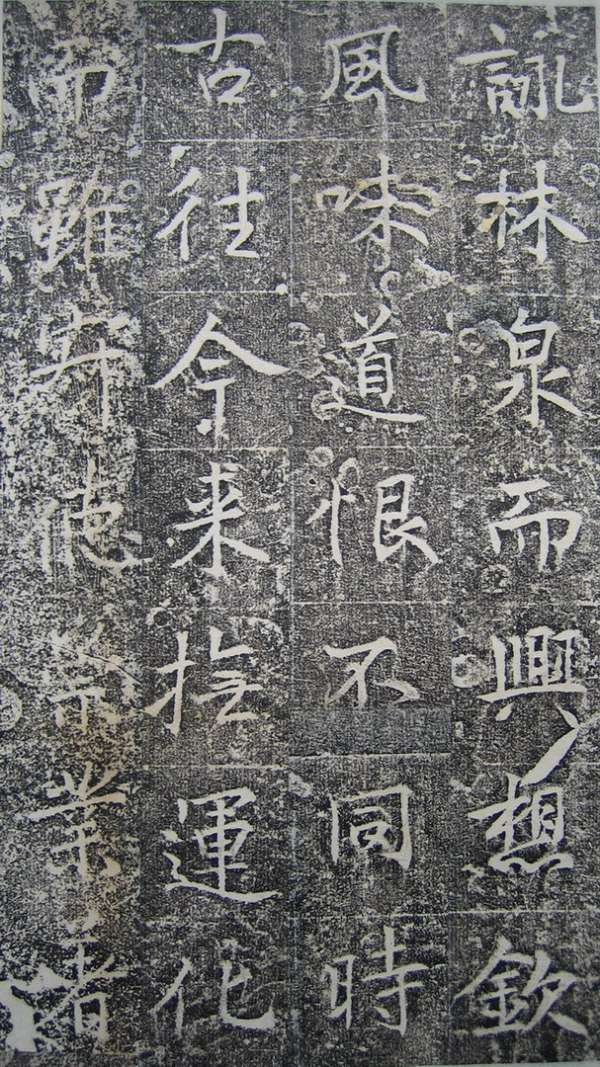 詠林泉而興想欽
風味道恨不同時
古往今来撫運化
而雖業者